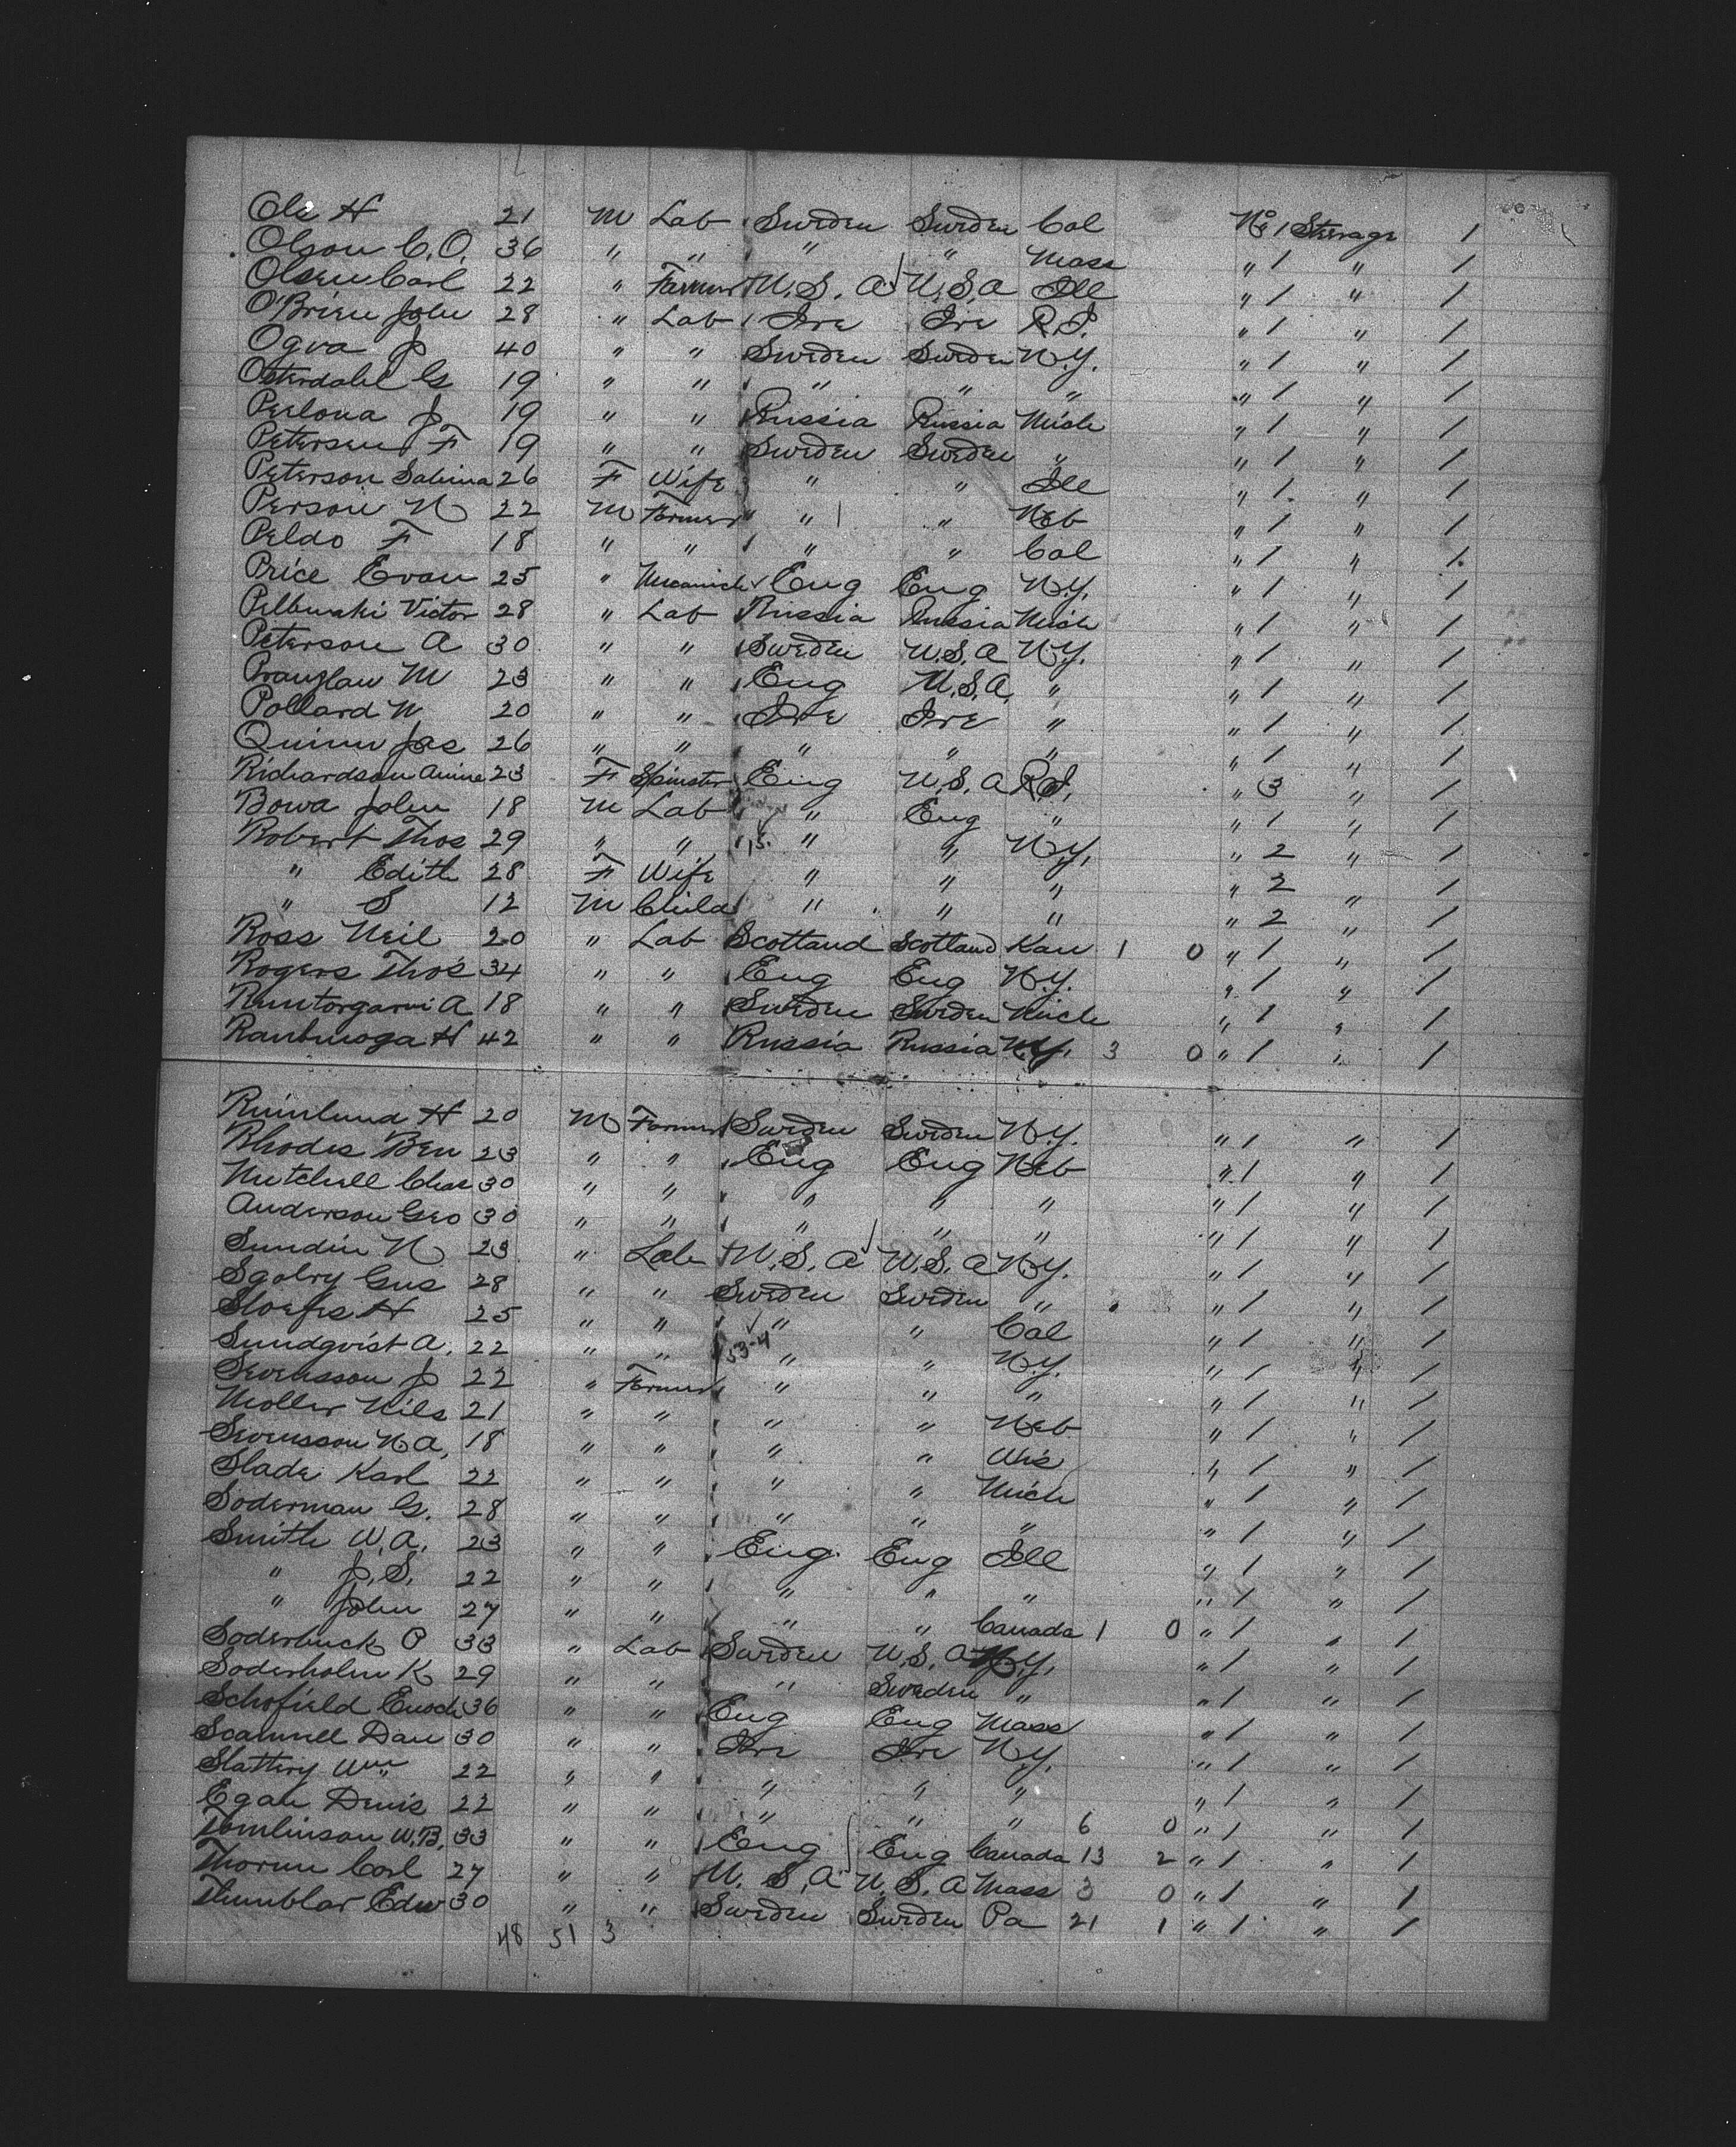 Ole H 21 M Lab Sweden Sweden Cal No 1 Steerage 1
Olson C.O. 36 " " " " Mass " 1 " 1
Olsen Carl 22 " Farmer U.S.A U.S.A Ill " 1 " 1
O'Brien John 28 " Lab Ire Ire R.I. " 1 " 1
Ogva J 40 " " Sweden Sweden N.Y. " 1 " 1
Osterdahl G 19 " " " " " " 1 " 1
Perlona J 19 " " Russia Russia Mich " 1 " 1
Petersen F 19 " " Sweden Sweden " " 1 " 1
Peterson Sabina 26 F Wife " " Ill " 1 " 1
Person N 22 M Farmer " " Neb " 1 " 1
Peldo F 18 " " " " Cal " 1 " 1
Price Evan 25 " Mecanich Eng Eng N.Y. " 1 " 1
Victor 28 " Lab Russia Russia Mich " 1 " 1
Peterson A 30 " " Sweden U.S.A N.Y. " 1 " 1
M 23 " " Eng U.S.A. " " 1 " 1
Pollard W 20 " " Ire Ire " " 1 " 1
Quinn Jas 26 " " " " " " 1 " 1
Richardson Annie 23 F Spinster Eng U.S.A R.I. " 3 " 1
Bowa John 18 M Lab " Eng " " 1 " 1
Robert Thos 29 " " " " N.Y. " 2 " 1
" Edith 28 F Wife " " " " 2 " 1
" S 12 M Child " " " " 2 " 1
Ross Neil 20 " Lab Scotland Scotland Kan 1 0 " 1 " 1
Rogers Thos 34 " " Eng Eng N.Y. " 1 " 1
A 18 " " Sweden Sweden Mich " 1 " 1
H 42 " " Russia Russia N.Y. 3 0 " 1 " 1
H 20 M Farmer Sweden Sweden N.Y. " 1 " 1
Rhodes Ben 23 " " Eng Eng Neb " 1 " 1
Mitchell Chas 30 " " " " " " 1 " 1
Anderson Geo 30 " " " " " " 1 " 1
Sundin N 23 " Lab U.S.A U.S.A N.Y. " 1 " 1
Gus 28 " " Sweden Sweden " " 1 " 1
H 25 " " " " Cal " 1 " 1
Sundqvist A. 22 " " 53-4 " " N.Y. " 1 " 1
Svensson J 22 " Farmer " " " " 1 " 1
Moller Nils 21 " " " " Neb " 1 " 1
Svensson N A. 18 " " " " Wis " 1 " 1
Slade Karl 22 " " " " Mich " 1 " 1
Soderman G. 28 " " " " " " 1 " 1
Smith W.A. 23 " " Eng. Eng Ill " 1 " 1
" J.S. 22 " " " " " " 1 " 1
" John 27 " " " " Canada 1 0 " 1 " 1
Soderbuck P 33 " Lab Sweden U.S.A N.Y. " 1 " 1
Soderholm K 29 " " " Sweden " " 1 " 1
Schofield Enoch 36 " " Eng Eng Mass " 1 " 1
Scannell Dan 30 " " Ire Ire N.Y. " 1 " 1
Slattery Wm 22 " " " " " " 1 " 1
Egan Denis 22 " " " " " 6 0 " 1 " 1
Tomlinson W.B. 33 " " Eng Eng Canada 13 2 " 1 " 1
Thorun Carl 27 " " U.S.A U.S.A Mass 3 0 " 1 " 1
Thunblar Edw 30 " " Sweden Sweden Pa 21 1 " 1 " 1
48 51 3